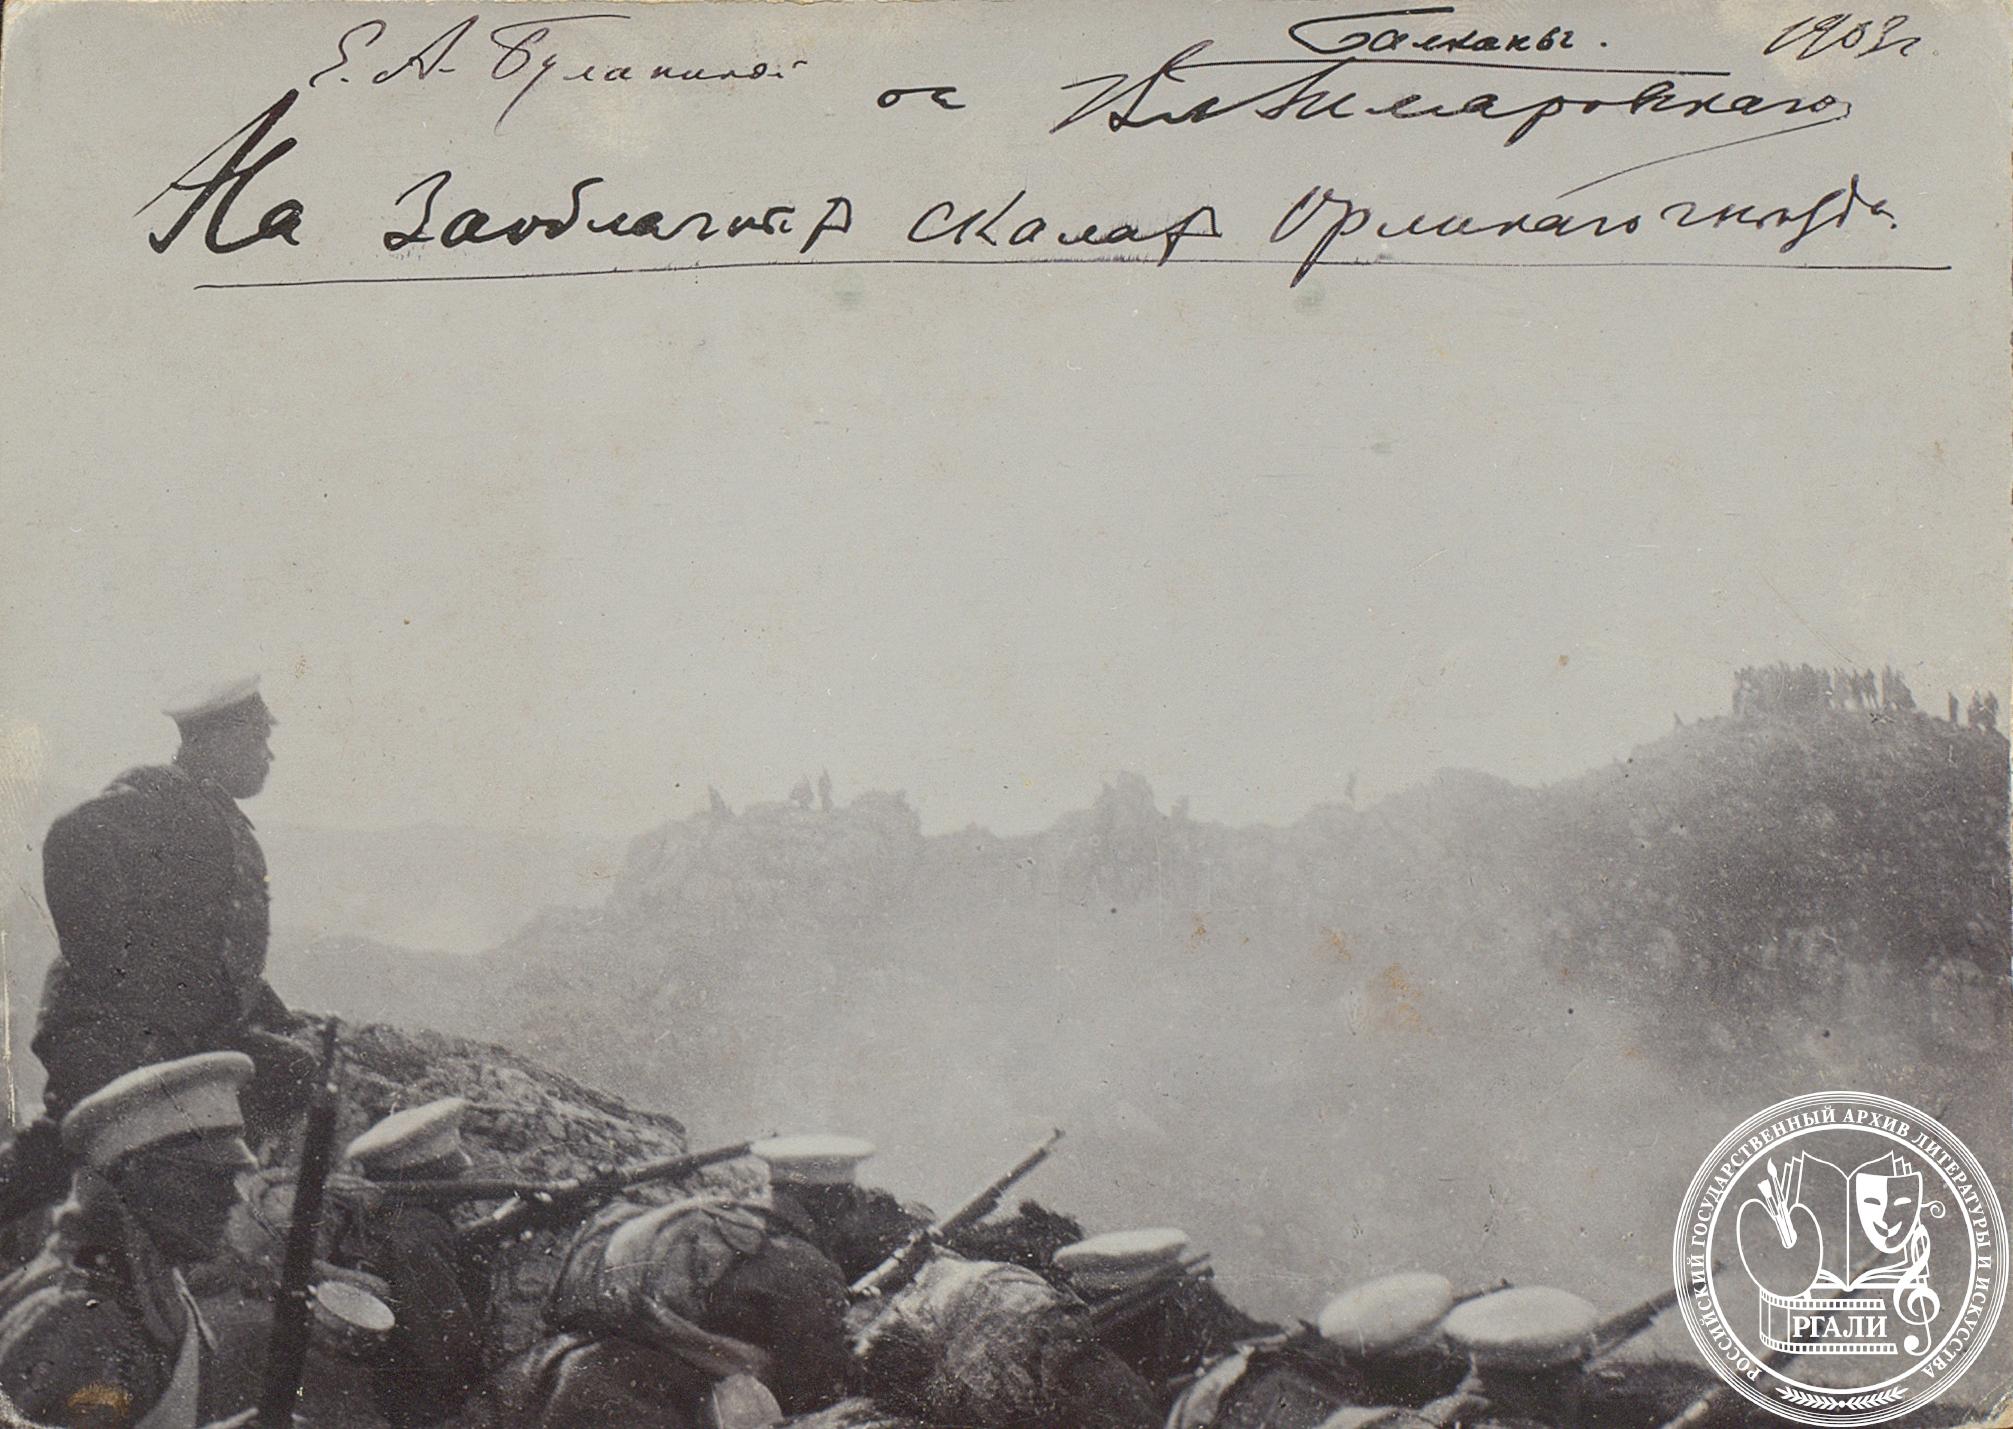 Балканы. 1903 г.
Е. А. Булапиной от Вл. Гиляровскаго
На Заоблачных скалах Орлинаго гнезда.
РОССИЙСКИЙ ГОСУДАРСТВЕННЫЙ АРХИВ ЛИТЕРАТУРЫ И ИСКУССТВА
РГАЛИ